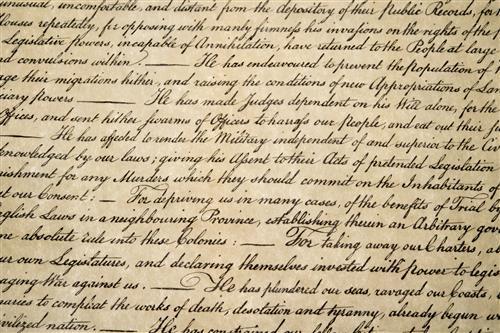 unusual, uncomfortable, and distant from the depository of their Public Records, for
Houses repeatedly, for opposing with manly firmness his invasions on the rights of the
Legislative powers, incapable of Annihilation, have returned to the People at large
and convulsions within. — He has endeavoured to prevent the population of
age their migrations hither, and raising the conditions of new Appropriations of Lan
ciary powers — He has made Judges dependent on his Will alone, for the
Offices, and sent hither swarms of Officers to harrass our People, and eat out their
— He has affected to render the Military independent of and superior to the Civ
knowledged by our laws; giving his Assent to their Acts of pretended Legislation
ishment for any Murders which they should commit on the Inhabitants o
ut our Consent: — For depriving us in many cases, of the benefits of Trial by
nglish Laws in a neighbouring Province, establishing therein an Arbitrary gov
me absolute rule into these Colonies: — For taking away our Charters, ab
ur own Legislatures, and declaring themselves invested with power to legis
aging War against us. — He has plundered our seas, ravaged our Coasts,
naries to compleat the works of death, desolation and tyranny, already begun
civilized nation. — He has constrained our fellow